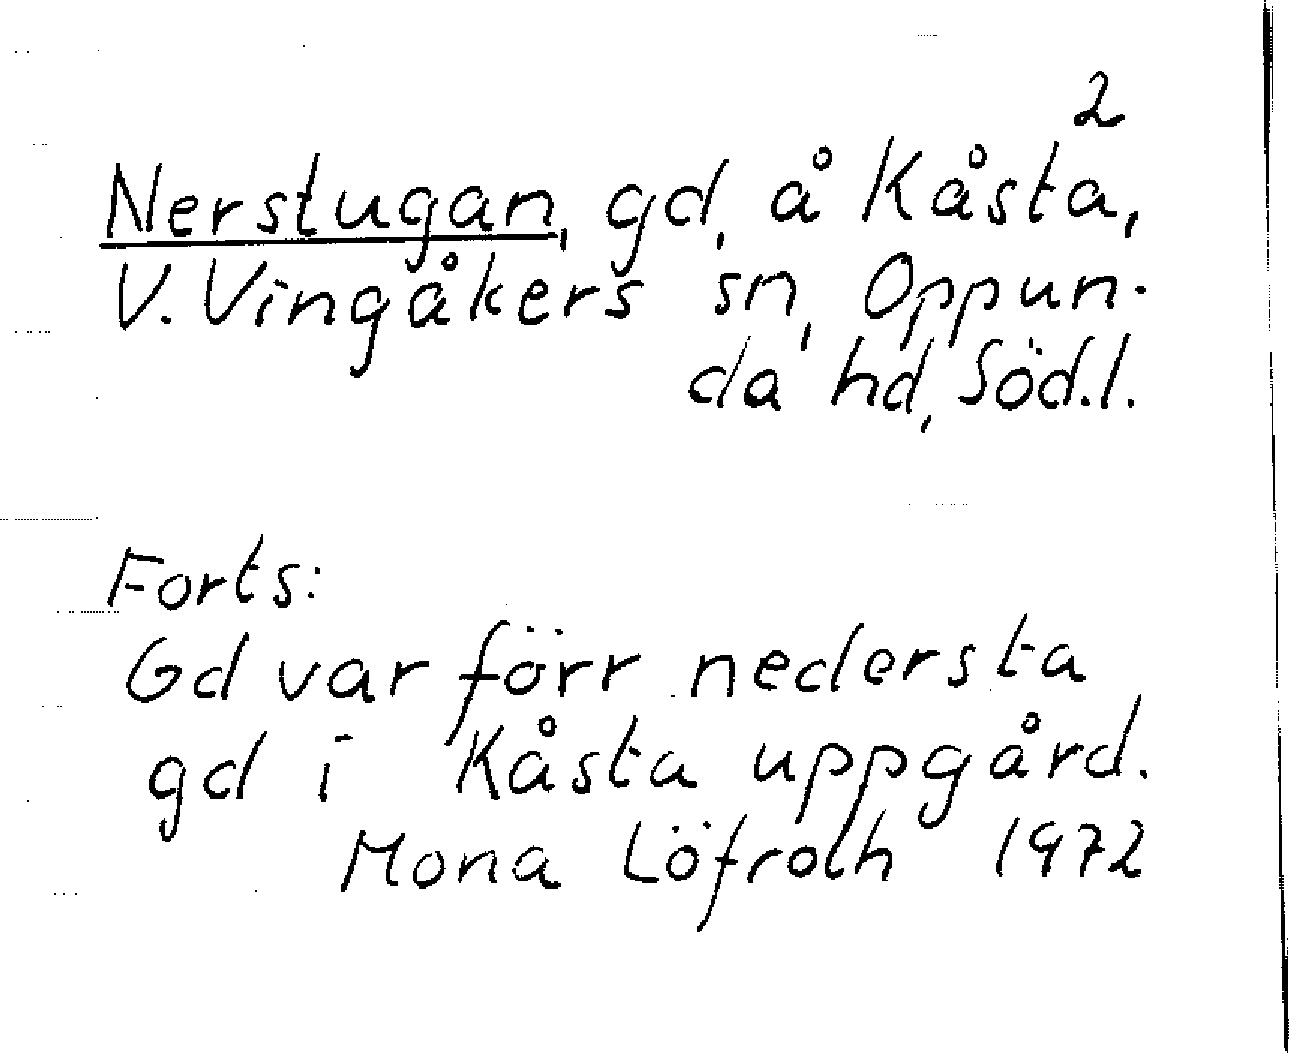 2
Nerstugan, gd, å Kåsta,
V. Vingåkers sn, Oppun-
da hd, Söd.l.
Forts:
Gd var förr nedersta
gd i Kåsta uppgård.
Mona Löfroth 1972